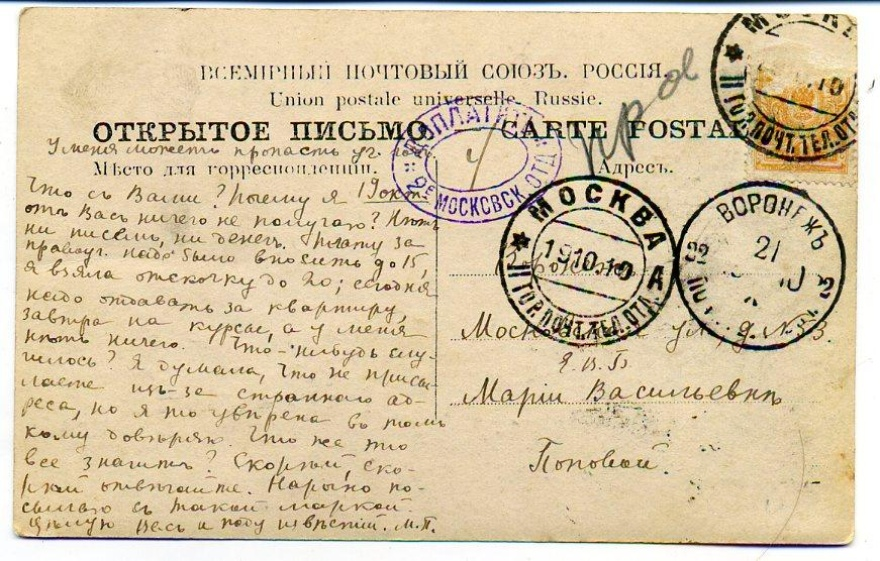 ВСЕМІРНЫЙ ПОЧТОВЫЙ СОЮЗЪ. РОССІЯ.
Union postale universelle. Russie.
ОТКРЫТОЕ ПИСЬМО CARTE POSTALE
У меня можетъ пропасть
Мѣсто для корреспонденціи.
Адресъ.
Что съ Вами? Почему я 19 окт.
отъ Васъ ничего не получаю? Нѣтъ
ни писемъ, ни денегъ. Плату за
надо было вносить до 15,
я взяла отсрочку до 20; сегодня
надо отдавать за квартиру,
завтра на курсы, а у меня
нѣтъ ничего. Что-нибудь слу-
чилось? Я думала, что не присы-
лаете изъ-за страннаго ад-
реса, но я то увѣрена въ томъ
кому довѣряю. Что же это
все значитъ? Скорѣй, ско-
рѣй отвѣчайте. Нарочно по-
сылаю съ такой маркой.
Цѣлую Васъ и жду извѣстій. М.П.
ДОПЛАТИТЬ
МОСКОВСК. ОТД.
МОСКВА
19.10.10
А
II ГОР. ПОЧТ. ТЕЛ. ОТД.
МОСКВА
10
II ГОР. ПОЧТ. ТЕЛ. ОТД.
ВОРОНЕЖЪ
21
ул. д. №
Е. В. Б.
Маріи Васильевнѣ
Поповой.